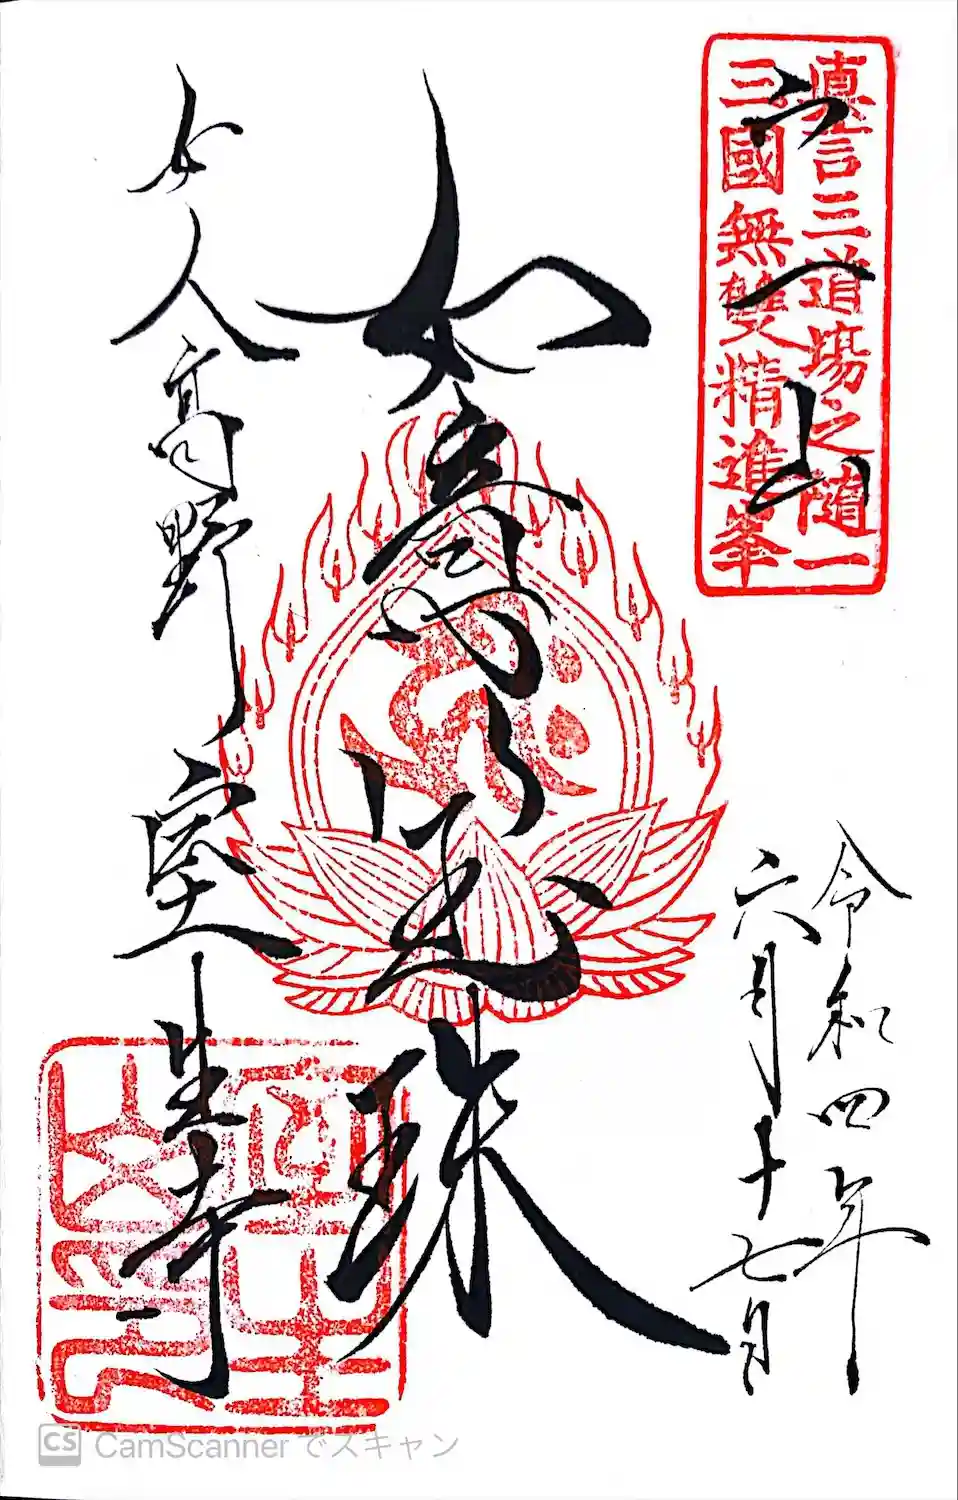 真言三道場之随一
三國無雙精進峯
宀一山
令和四年
六月十七日
如意宝珠
女人高野
室生寺
CamScanner でスキャン